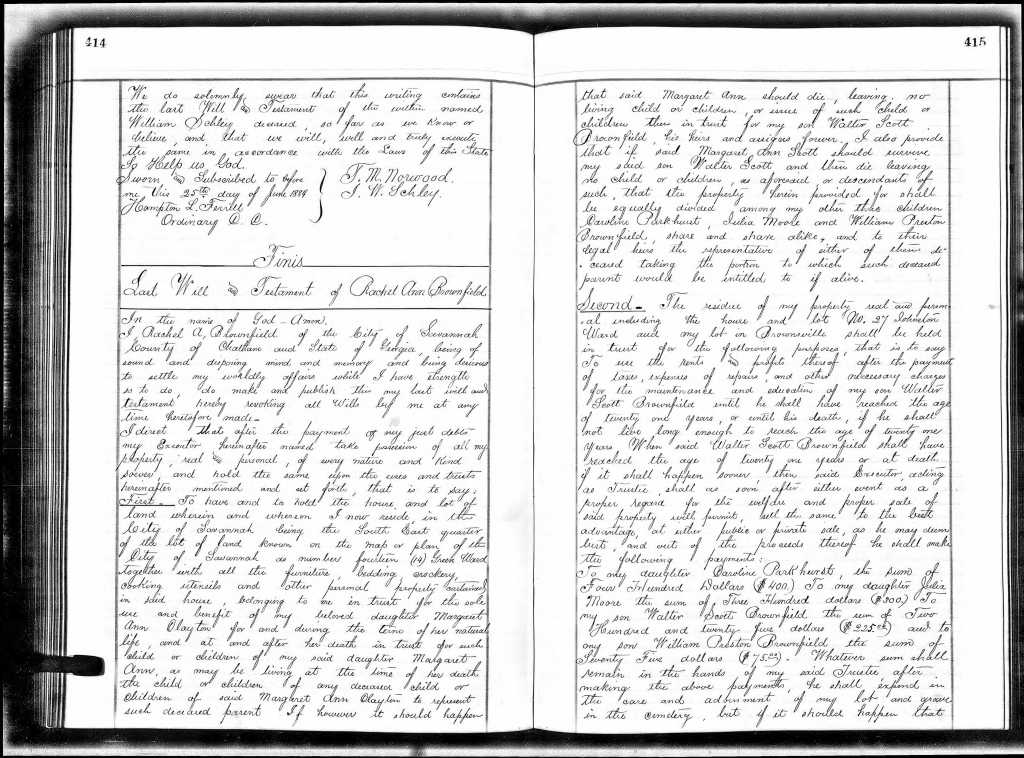 414
We do solemnly swear that this writing contains
the last Will and Testament of the within named
William Schley deceased, so far as we know or
believe, and that we will, well and truly execute
the same in accordance with the Laws of this State
So Help us God.
Sworn and Subscribed to before
me this 25th day of June 1884
Hampton L. Ferrill
Ordinary C. C.
T. M. Norwood.
J. W. Schley.
Finis
Last Will and Testament of Rachel Ann Brownfield.
In the name of God - Amen,
I, Rachel A, Brownfield of the City of Savannah
County of Chatham and State of Georgia being of
sound and disposing mind and memory and being desirous
to settle my worldly affairs while I have strength
so to do, do make and publish this my last will and
testament hereby revoking all Wills by me at any
time heretofore made -
I direct that after the payment of my just debts
my Executor hereinafter named take possession of all my
property, real and personal, of every nature and kind
soever, and hold the same upon the uses and trusts
hereinafter mentioned and set forth, that is to say;
First - To have and to hold the house and lot of
land wherein and whereon I now reside in the
City of Savannah being the South East quarter
of the lot of land known on the map or plan of the
City of Savannah as number fourteen (14) Green Ward
together with all the furniture, bedding crockery,
cooking utensils and other personal property contained
in said house belonging to me in trust for the sole
use and benefit of my beloved daughter Margaret
Ann Clayton for and during the term of her natural
life, and at and after her death in trust for such
child or children of my said daughter Margaret
Ann, as may be living at the time of her death
the child or children of any deceased child or
children of said Margaret Ann Clayton to represent
such deceased parent If however it should happen
415
that said Margaret Ann should die, leaving no
living child or children, or issue of such child or
children then in trust for my son Walter Scott
Brownfield, his heirs and assigns forever. I also provide
that if said Margaret Ann Scott should survive
my said son Walter Scott and then die leaving
no child or children, as aforesaid or descendants of
such, that the property herein provided for shall
be equally divided among my other three children
Caroline Parkhurst, Julia Moore and William Preston
Brownfield, share and share alike, and to their
legal heirs the representative of either of them de-
ceased taking the portion to which such deceased
parent would be intitled to if alive.
Second - The residue of my property real and person-
al including the house and lot No. 27 Johnston
Ward and my lot in Brownsville shall be held
in trust for the following purposes, that is to say
To use the rents and profits thereof after the payment
of taxes, expenses of repairs, and other necessary charges
for the maintenance and education of my son Walter
Scott Brownfield until he shall have reached the age
of twenty one years or until his death, if he shall
not live long enough to reach the age of twenty one
years When said Walter Scott Brownfield shall have
reached the age of twenty one years or at death
if it shall happen sooner, then said Executor acting
as Trustee, shall as soon after either event as a
proper regard for the welfare and proper sale of
said property will permit, sell the same to the best
advantage, at either public or private sale as he may deem
best, and out of the proceeds thereof he shall make
the following payments:
To my daughter Caroline Parkhurst the sum of
Four Hundred Dollars ($400.) To my daughter Julia
Moore the sum of Three Hundred dollars ($300.) To
my son Walter Scott Brownfield the sum of Two
Hundred and twenty five dollars ($225.00) and to
my son William Preston Brownfield the sum of
Seventy Five dollars ($75.00). Whatever sum shall
remain in the hands of my said Trustee after
making the above payments, he shall expend in
the care and adornment of my lot and grave
in the cemetery, but if it should happen that